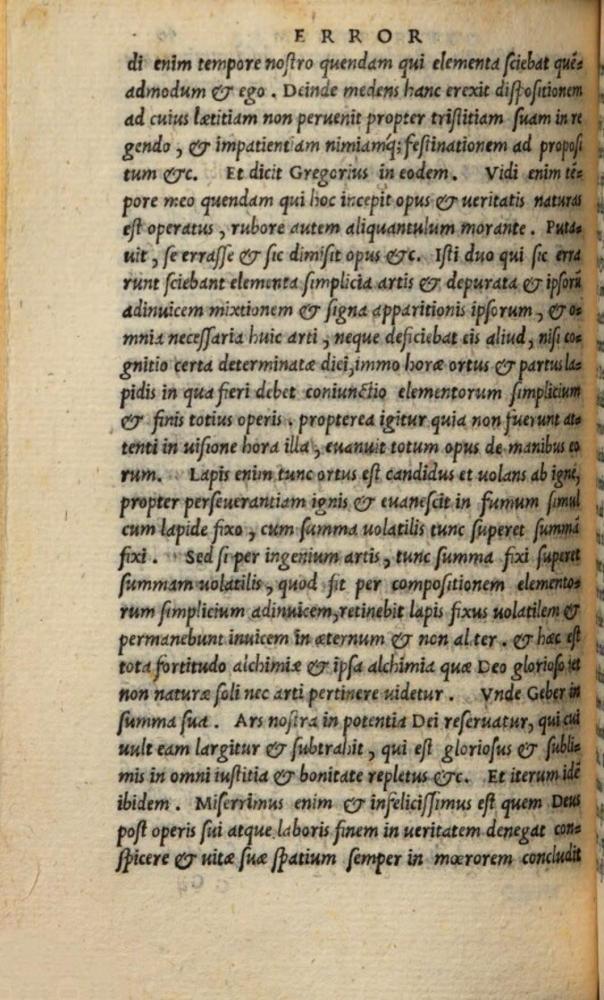 ERROR
di enim tempore nostro quendam qui elementa sciebat quē=
admodum & ego. Deinde medens hanc erexit dispositionem
ad cuius lætitiam non peruenit propter tristitiam suam in re
gendo, & impatientiam nimiamq; festinationem ad proposi
tum &c. Et dicit Gregorius in eodem. Vidi enim tē=
pore meo quendam qui hoc incepit opus & ueritatis naturas
est operatus, rubore autem aliquantulum morante. Puta=
uit, se errasse & sic dimisit opus &c. Isti duo qui sic erra
runt sciebant elementa simplicia artis & depurata & ipsorū
adinuicem mixtionem & signa apparitionis ipsorum, & o=
mnia necessaria huic arti, neque deficiebat eis aliud, nisi co=
gnitio certa determinatæ diei, immo horæ ortus & partus la=
pidis in qua fieri debet coniunctio elementorum simplicium
& finis totius operis. propterea igitur quia non fuerunt at=
tenti in uisione hora illa, euanuit totum opus de manibus eo
rum. Lapis enim tunc ortus est candidus et uolans ab igne,
propter perseuerantiam ignis & euanescit in fumum simul
cum lapide fixo, cum summa uolatilis tunc superet summā
fixi. Sed si per ingenium artis, tunc summa fixi superet
summam uolatilis, quod fit per compositionem elemento=
rum simplicium adinuicem, retinebit lapis fixus uolatilem &
permanebunt inuicem in æternum & non al ter. & hæc est
tota fortitudo alchimiæ & ipsa alchimia quæ Deo glorioso et
non naturæ soli nec arti pertinere uidetur. Vnde Geber in
summa sua. Ars nostra in potentia Dei reseruatur, qui cui
uult eam largitur & subtrahit, qui est gloriosus & subli=
mis in omni iustitia & bonitate repletus &c. Et iterum idē
ibidem. Miserrimus enim & infelicissimus est quem Deus
post operis sui atque laboris finem in ueritatem denegat con=
spicere & uitæ suæ spatium semper in mœrorem concludit